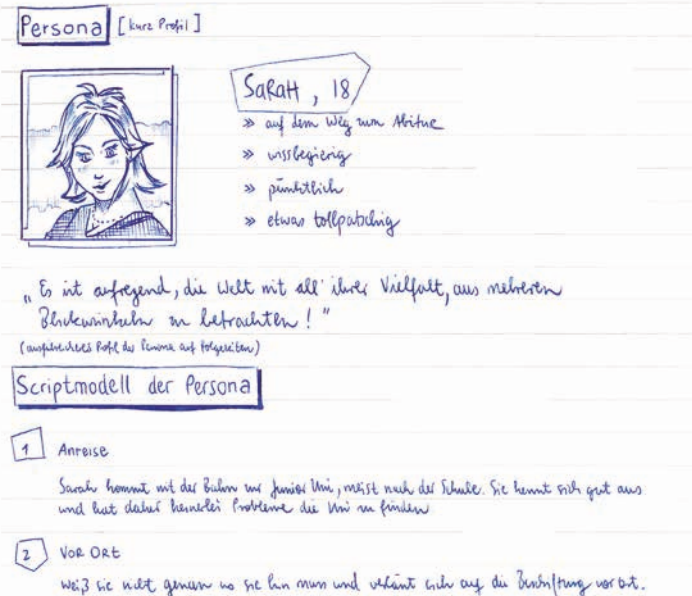 Persona [kurz Profil]
SaRaH, 18
» auf dem Weg zum Abitur
» wissbegierig
» pünktlich
» etwas tollpatschig
„Es ist aufregend, die Welt mit all' ihrer Vielfalt, aus mehreren
Blickwinkeln zu betrachten!"
(ausführliches Profil der Persona auf Folgeseiten)
Scriptmodell der Persona
1 Anreise
Sarah kommt mit der Bahn zur Junior Uni, meist nach der Schule. Sie kennt sich gut aus
und hat daher keinerlei Probleme die Uni zu finden
2 VOR ORt
weiß sie nicht genau wo sie hin muss und verlässt sich auf die Beschriftung vor Ort.